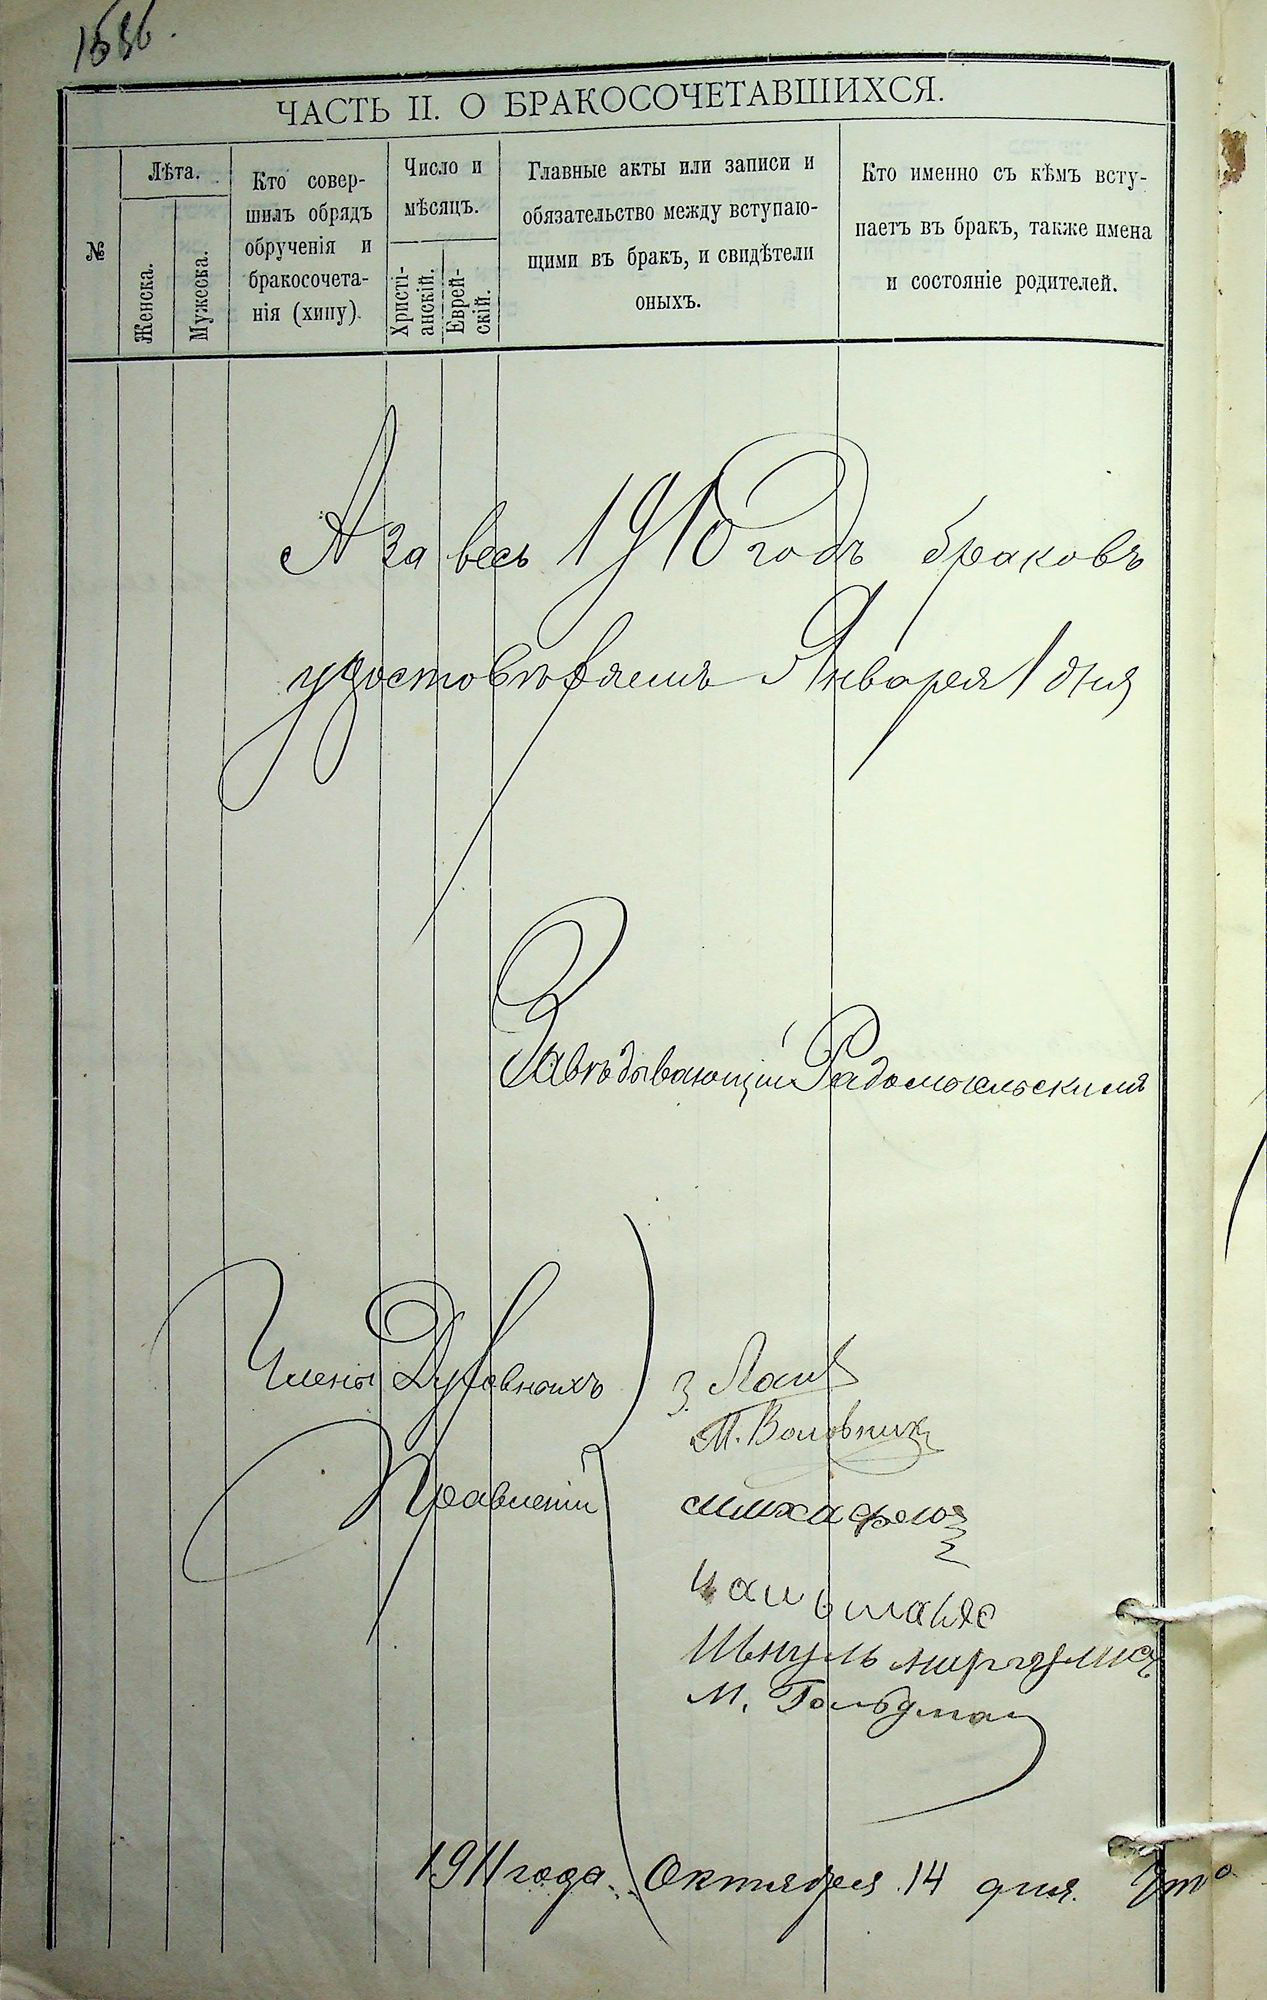 ЧАСТЬ II. О БРАКОСОЧЕТАВШИХСЯ.
№
Лѣта.
Женска.
Мужеска.
Кто совер-
шилъ обрядъ
обрученія и
бракосочета-
нія (хипу).
Число и
мѣсяцъ.
Христі-
анскій.
Еврей-
скій.
Главные акты или записи и
обязательство между вступаю-
щими въ бракъ, и свидѣтели
оныхъ.
Кто именно съ кѣмъ всту-
паетъ въ бракъ, также имена
и состояніе родителей.
А за весь 1910 годъ браковъ
удостовѣряемъ Января 1 дня
Завѣдывающій Радомысльскимъ
Члены Духовныхъ
Правленій
М. Воловник
Шмуль
М. Гольдман
1911 года Октября 14 дня. Что